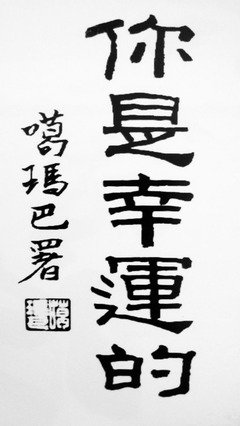 你是幸運的
噶玛巴署